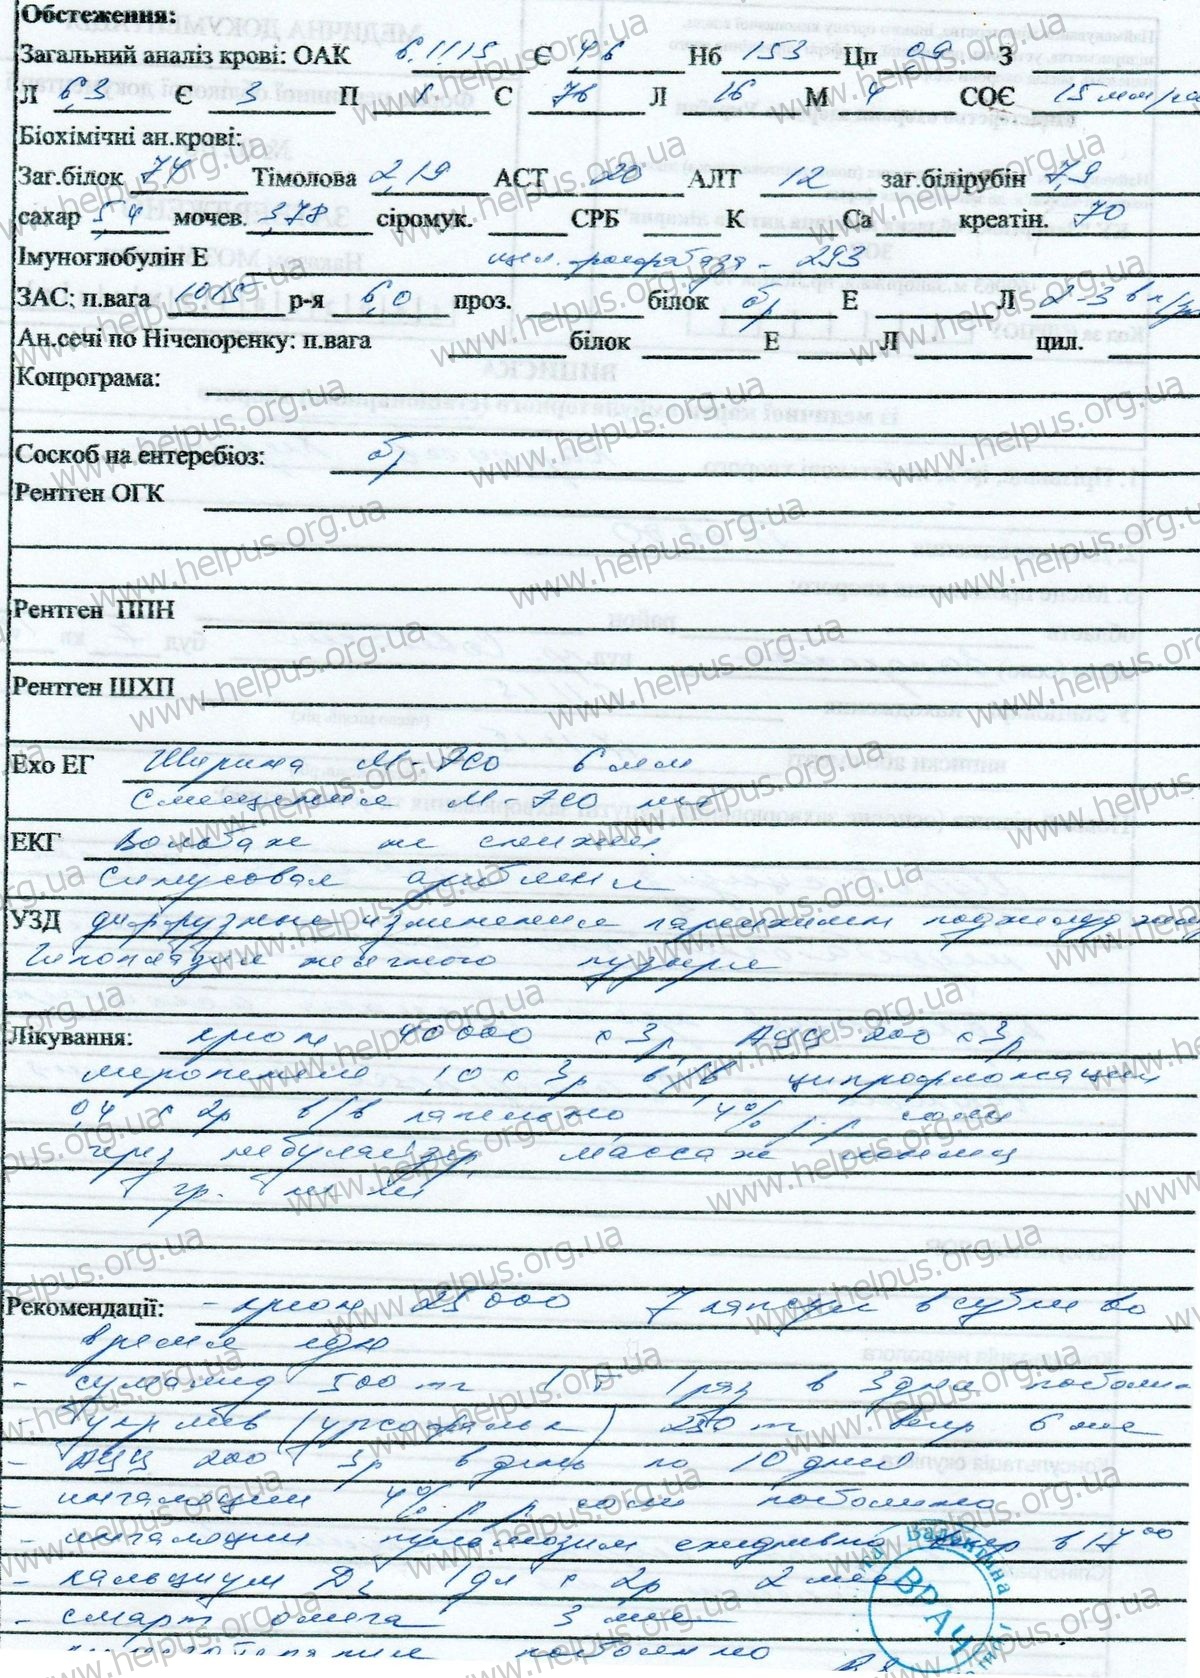 Обстеження:
Загальний аналіз крові: ОАК 6.11.15 Є 4,6 Нб 153 Цп 0,9 З
Л 6,3 Є 3 П 1 С 76 Л 16 М 4 СОЄ 15 мм/час
Біохімічні ан.крові:
Заг.білок 74 Тімолова 2,19 АСТ 20 АЛТ 12 заг.білірубін 7,9
сахар 5,4 мочев. 3,78 сіромук. СРБ К Са креатін. 70
Імуноглобулін Е щел. фосфатаза - 293
ЗАС; п.вага 1015 р-я 6,0 проз. білок бр Е Л 2-3 в п/з
Ан.сечі по Нічепоренку: п.вага білок Е Л цил.
Копрограма:
Соскоб на ентеребіоз: бр
Рентген ОГК
Рентген ППН
Рентген ШХП
Ехо ЕГ Ширина М-Эхо 6 мм
Смещения М-Эхо нет
ЕКГ Вольтаж не снижен
Синусовая аритмия
УЗД диффузные изменения паренхимы поджелудочной
Гипоплазия желчного пузыря
Лікування: креон 40000 х 3р АЦЦ 200 х 3р
меропенем 1,0 х 3р в/в ципрофлоксацин
0,4 х 2р в/в капельно, 4% р-р соли
через небулайзер, массаж
гр. кл
Рекомендації: - креон 25000 7 капсул в сутки во
время еды
- сумамед 500 мг 1 т 1 раз в 3 дня постоянно
- укрлив (урсофальк) 250 мг веч 6 мес
- АЦЦ 200 3р в день по 10 дней
- ингаляции 4% р-р соли постоянно
- ингаляции пульмозим ежедневно в 17 00
- кальциум Д3 1дл х 2р 2 мес
- смарт омега 3 мес
постоянно
Валентина
ВРАЧ
www.helpus.org.ua